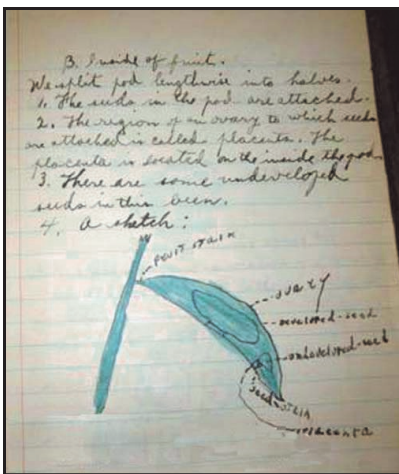 B. Inside of fruit.
We split pod lengthwise into halves.
1. The seeds in the pod are attached.
2. The region of an ovary to which seeds
are attached is called placenta. The
placenta is located on the inside the pod.
3. There are some undeveloped
seeds in this been.
4. A sketch:
FRUIT STALK
OVARY
DEVELOPED-SEED
UNDEVELOPED-SEED
PLACENTA